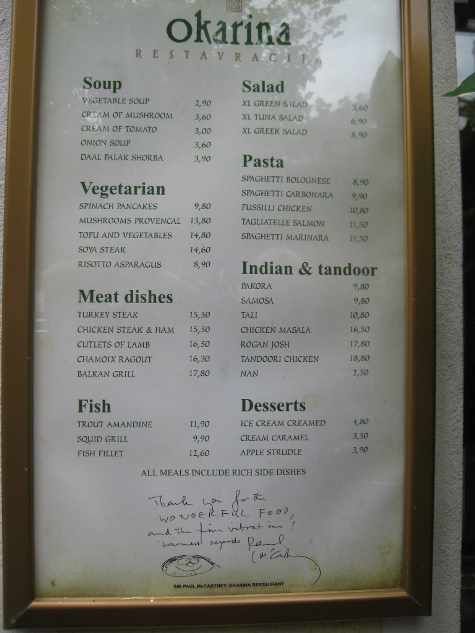 Okarina
RESTAVRACIJA
Soup
VEGETABLE SOUP 2,90
CREAM OF MUSHROOM 3,60
CREAM OF TOMATO 3,00
ONION SOUP 3,60
DAAL PALAK SHORBA 3,90
Vegetarian
SPINACH PANCAKES 9,80
MUSHROOMS PROVENCAL 13,80
TOFU AND VEGETABLES 14,80
SOYA STEAK 14,60
RISOTTO ASPARAGUS 8,90
Meat dishes
TURKEY STEAK 15,50
CHICKEN STEAK & HAM 15,50
CUTLETS OF LAMB 16,50
CHAMOIX RAGOUT 16,50
BALKAN GRILL 17,80
Fish
TROUT AMANDINE 11,90
SQUID GRILL 9,90
FISH FILLET 12,60
Salad
XL GREEN SALAD 5,60
XL TUNA SALAD 6,90
XL GREEK SALAD 8,90
Pasta
SPAGHETTI BOLOGNESE 8,90
SPAGHETTI CARBONARA 9,90
FUSSILLI CHICKEN 10,80
TAGLIATELLE SALMON 11,50
SPAGHETTI MARINARA 11,50
Indian & tandoor
PAKORA 9,80
SAMOSA 9,80
TALI 10,80
CHICKEN MASALA 16,50
ROGAN JOSH 17,80
TANDOORI CHICKEN 18,80
NAN 2,50
Desserts
ICE CREAM CREAMED 4,80
CREAM CARAMEL 3,50
APPLE STRUDLE 3,90
ALL MEALS INCLUDE RICH SIDE DISHES
Thank you for the
WONDERFUL FOOD,
and the fine vibrations!
warmest regards Paul
McCartney
SIR PAUL McCARTNEY OKARINA RESTAURANT